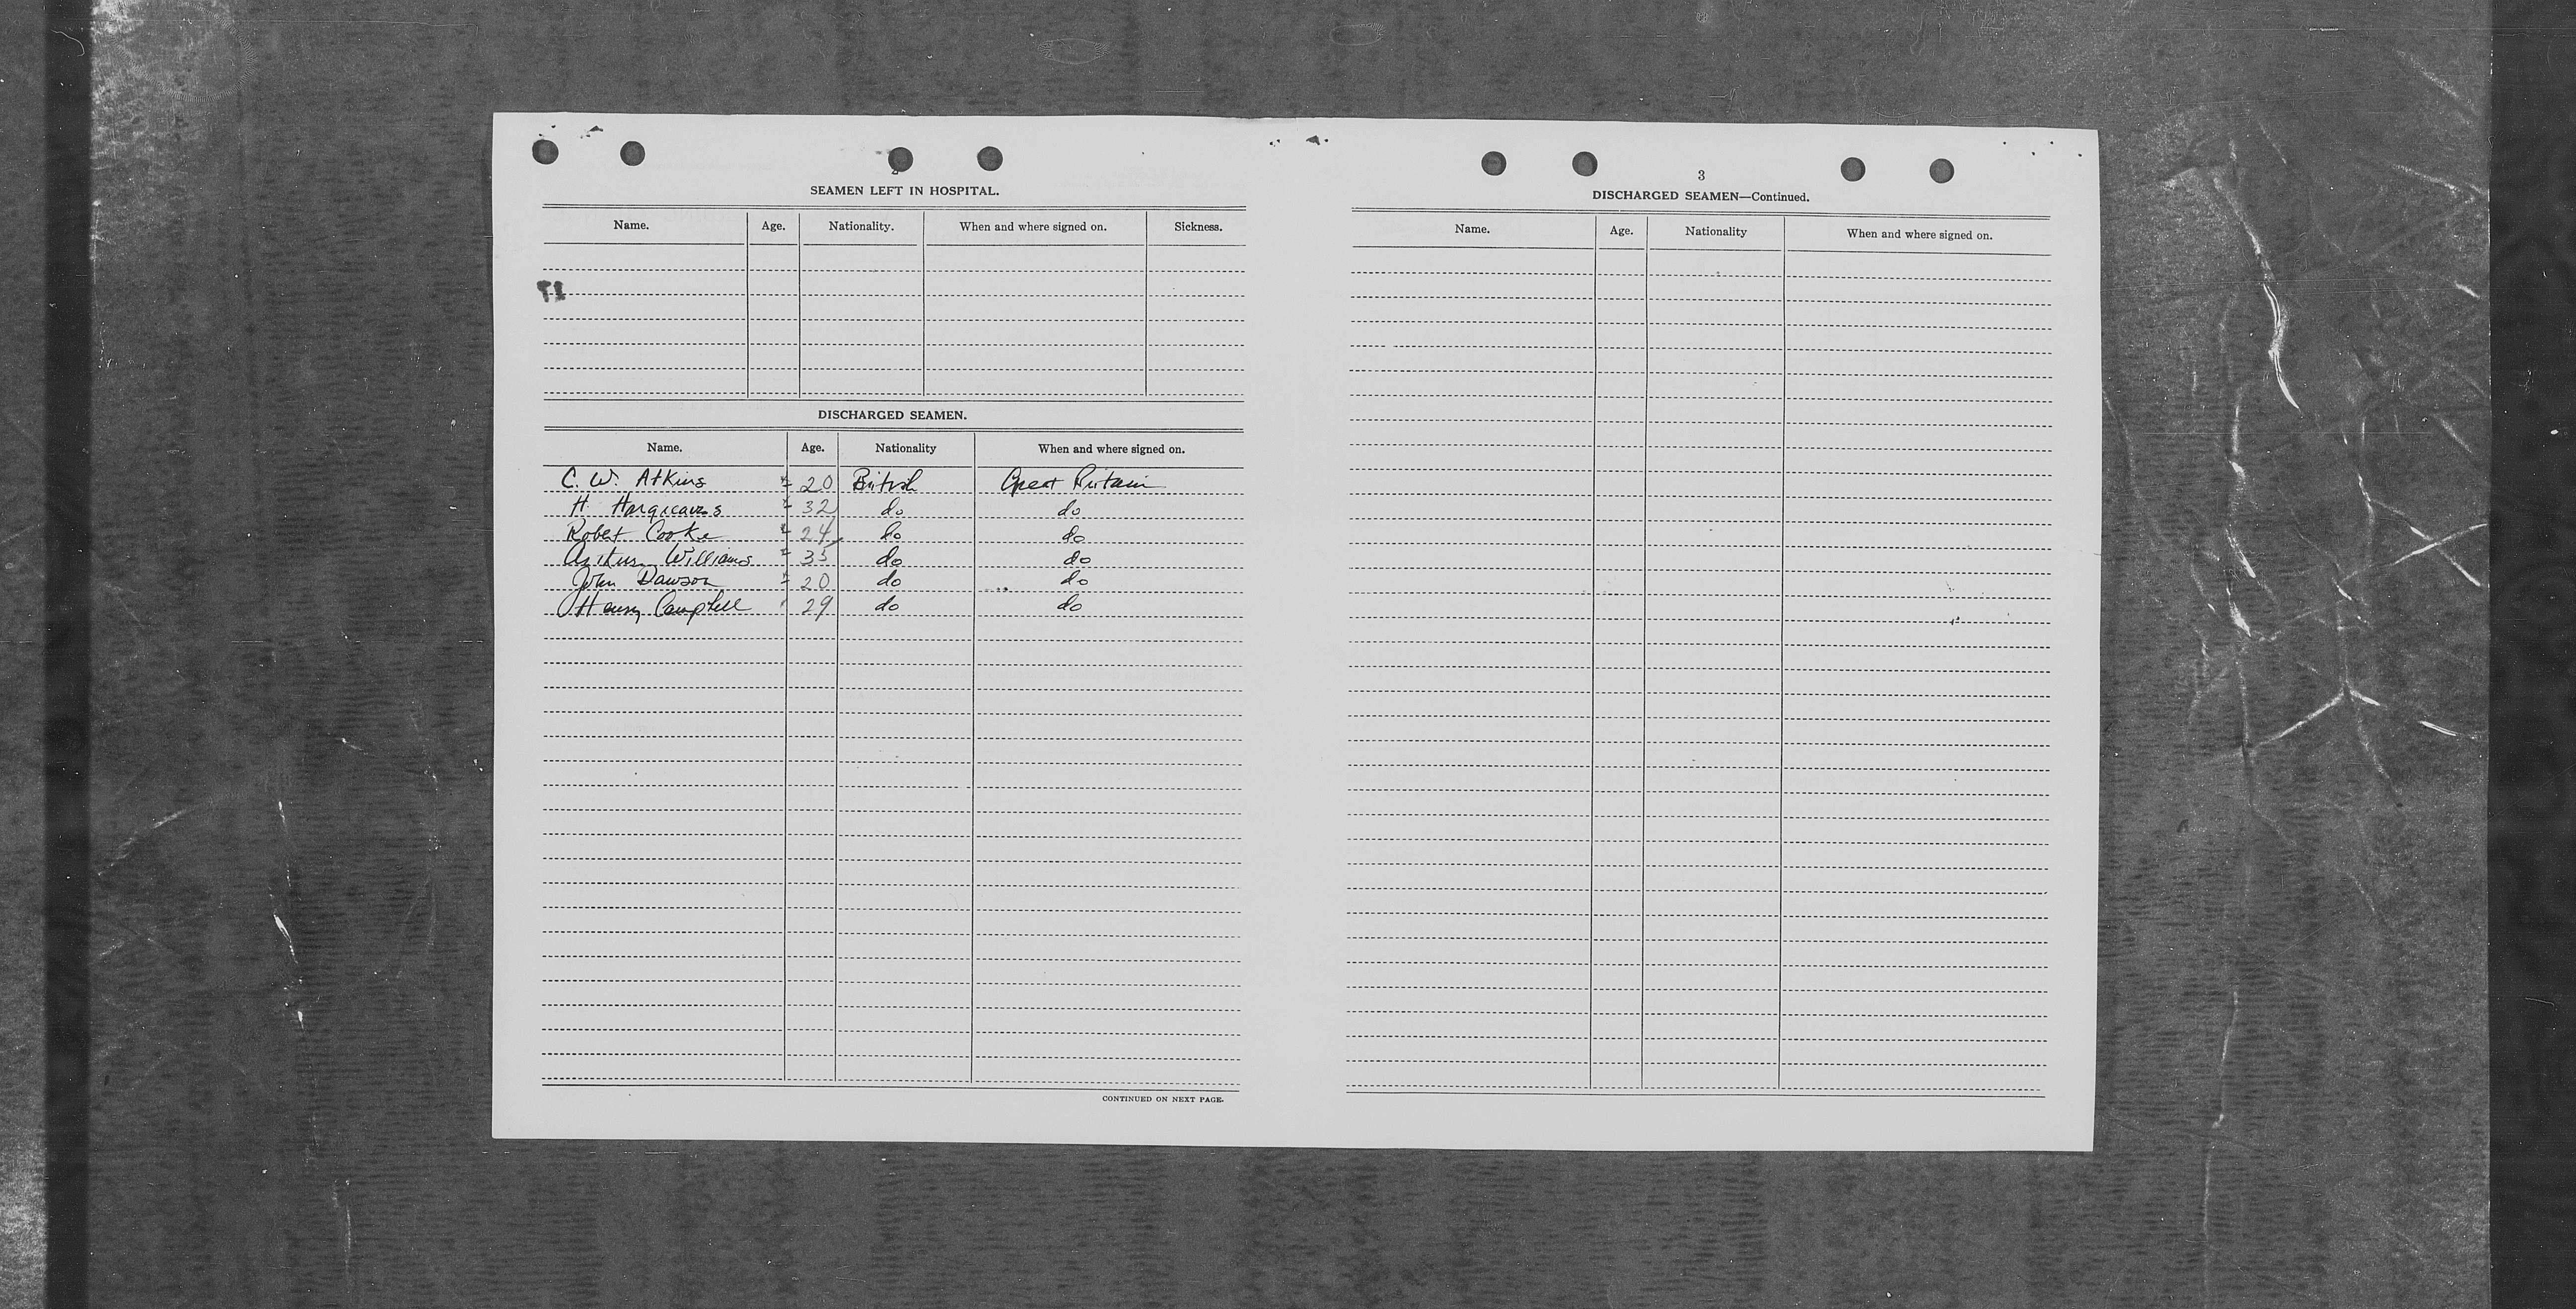 SEAMEN LEFT IN HOSPITAL.
Name. Age. Nationality. When and where signed on. Sickness.
DISCHARGED SEAMEN.
Name. Age. Nationality When and where signed on.
C. W. Atkins 20 British Great Britain
H. Hargreaves 32 do do
Robert Cooke 24 do do
Arthur Williams 35 do do
John Dawson 20 do do
Henry Campbell 29 do do
CONTINUED ON NEXT PAGE.
3
DISCHARGED SEAMEN—Continued.
Name. Age. Nationality When and where signed on.